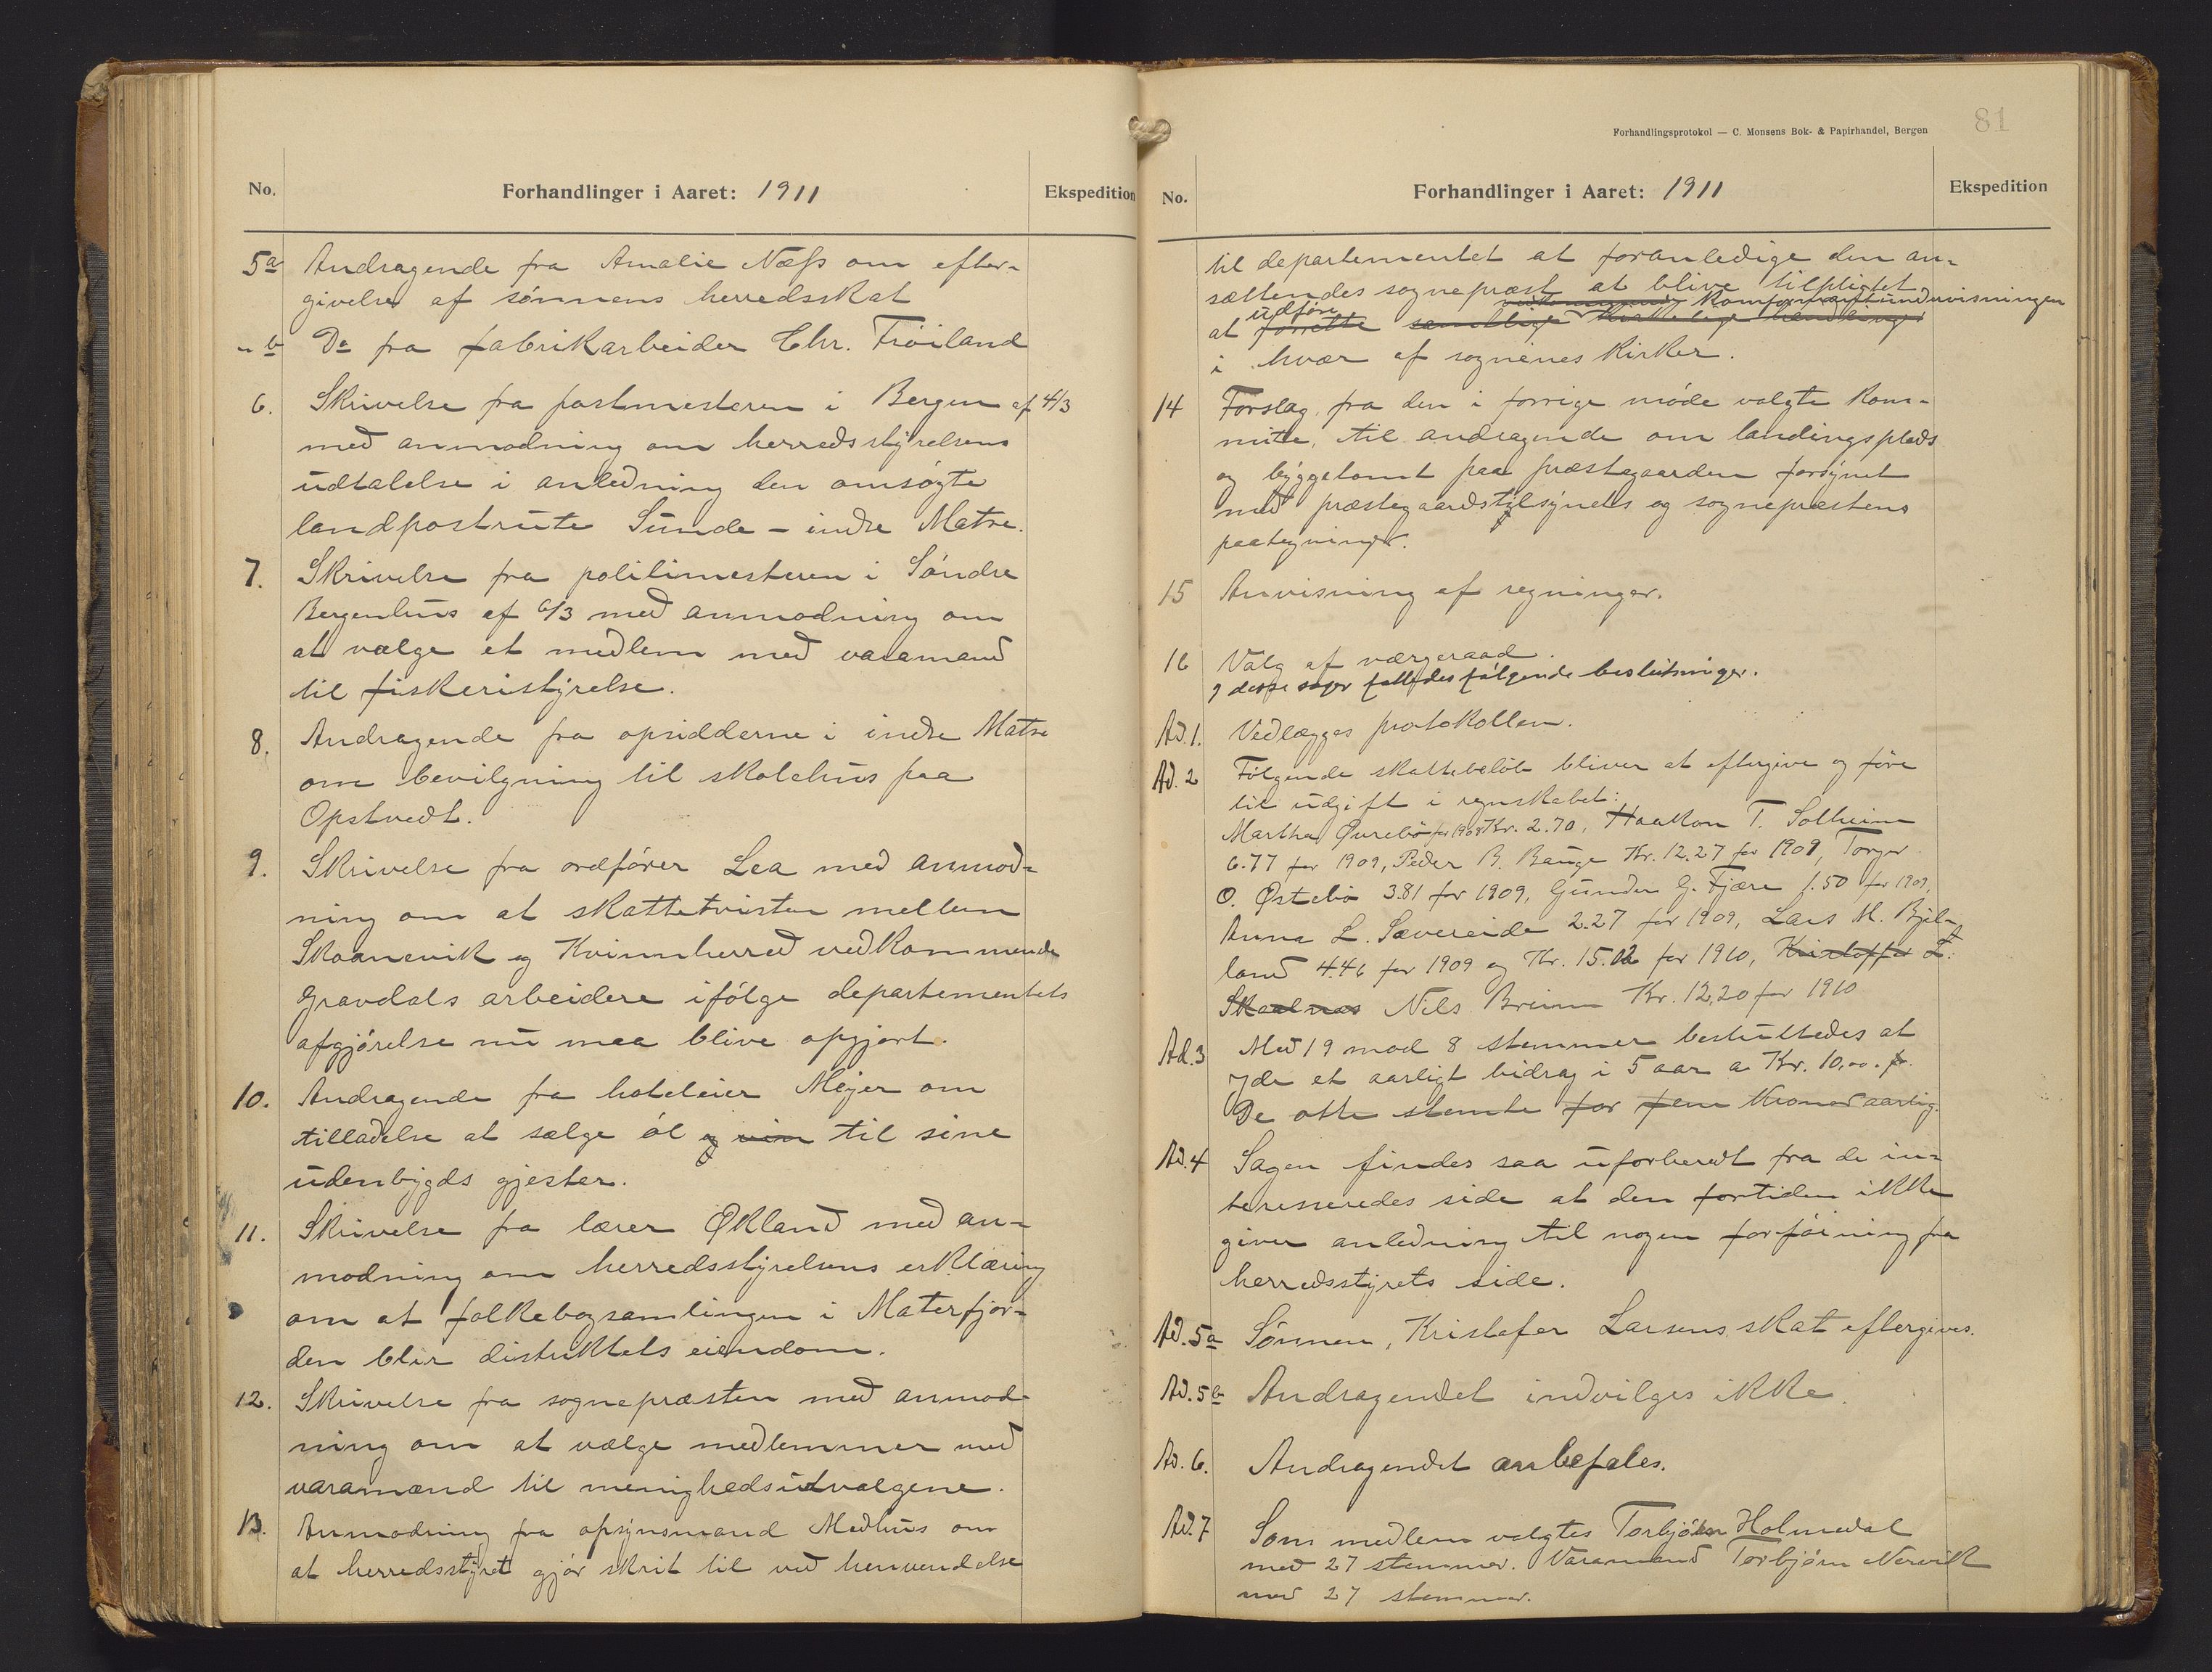 No.
Forhandlinger i Aaret: 1911
Ekspedition
5a Andragende fra Amalie Næss om efter-
givelse af sønnens herredsskat
" b Do fra fabrikarbeider Chr. Trøiland
6. Skrivelse fra postmesteren i Bergen af 4/3
med anmodning om herredsstyrelsens
udtalelse i anledning den omsøgte
landpostrute Sunde - indre Matre.
7. Skrivelse fra politimesteren i Søndre
Bergenhus af 6/3 med anmodning om
at vælge et medlem med varamand
til fiskeristyrelse.
8. Andragende fra opsidderne i indre Matre
om bevilgning til skolehus paa
Opstvedt.
9. Skrivelse fra ordfører Lea med anmod-
ning om at skattetvisten mellem
Skaanevik og Kvinnherred vedkommende
Gravdals arbeidere ifølge departementets
afgjørelse nu maa blive opgjort.
10. Andragende fra hoteleier Mejer om
tilladelse at sælge øl og vin til sine
udenbygds gjester.
11. Skrivelse fra lærer Økland med an-
modning om herredsstyrelsens erklæring
om at folkebogsamlingen i Materfjor-
den blir distriktets eiendom.
12. Skrivelse fra sognepræsten med anmod-
ning om at vælge medlemmer med
varamænd til menighedsudvalgene.
13. Anmodning fra opsynsmand Medhus om
at herredsstyret gjør skrit til ved henvendelse
Forhandlingsprotokol — C. Monsens Bok- & Papirhandel, Bergen
81
No.
Forhandlinger i Aaret: 1911
Ekspedition
til departementet at foranledige den an-
sættendes sognepræst at blive tilpligtet
udføre konfirmantundervisningen
at forrette samtlige kirkelige handlinger
i hvær af sognenes kirker.
14 Forslag fra den i forrige møde valgte kom-
mite, til andragende om landingsplads
og byggetomt paa præstegaarden forsynet
med præstegaardstilsynets og sognepræstens
paategninger.
15 Anvisning af regninger.
16 Valg af værgeraad.
I disse sager fattedes følgende beslutninger.
Ad. 1. Vedlægges protokollen.
Ad. 2 Følgende skattebeløb bliver at eftergive og føre
til udgift i regnskabet:
Martha Øvrebø for 1909 Kr. 2.70, Haakon T. Solheim
6.77 for 1909, Peder B. Bauge Kr. 12.27 for 1909, Torger
O. Østebø 3.81 for 1909, Gunder G. Fjære 1.50 for 1909,
Anna L. Sævereide 2.27 for 1909, Lars M. Bjel-
land 4.46 for 1909 og Kr. 15.12 for 1910, Kristoffer L.
Skaalnes Nils Breim Kr. 12,20 for 1910
Ad. 3 Med 19 mod 8 stemmer besluttedes at
yde et aarligt bidrag i 5 aar a Kr. 10,00.
De otte stemte for fem kroner aarlig.
Ad. 4 Sagen findes saa uforberedt fra de in-
teresseredes side at den fortiden ikke
giver anledning til nogen forføining fra
herredsstyrets side.
Ad. 5a Sønnen, Kristofer Larsens skat eftergives.
Ad. 5b Andragendet indvilges ikke.
Ad. 6. Andragendet anbefales.
Ad. 7 Som medlem valgtes Torbjörn Holmedal
med 27 stemmer. Varamand Torbjørn Nervik
med 27 stemmer.